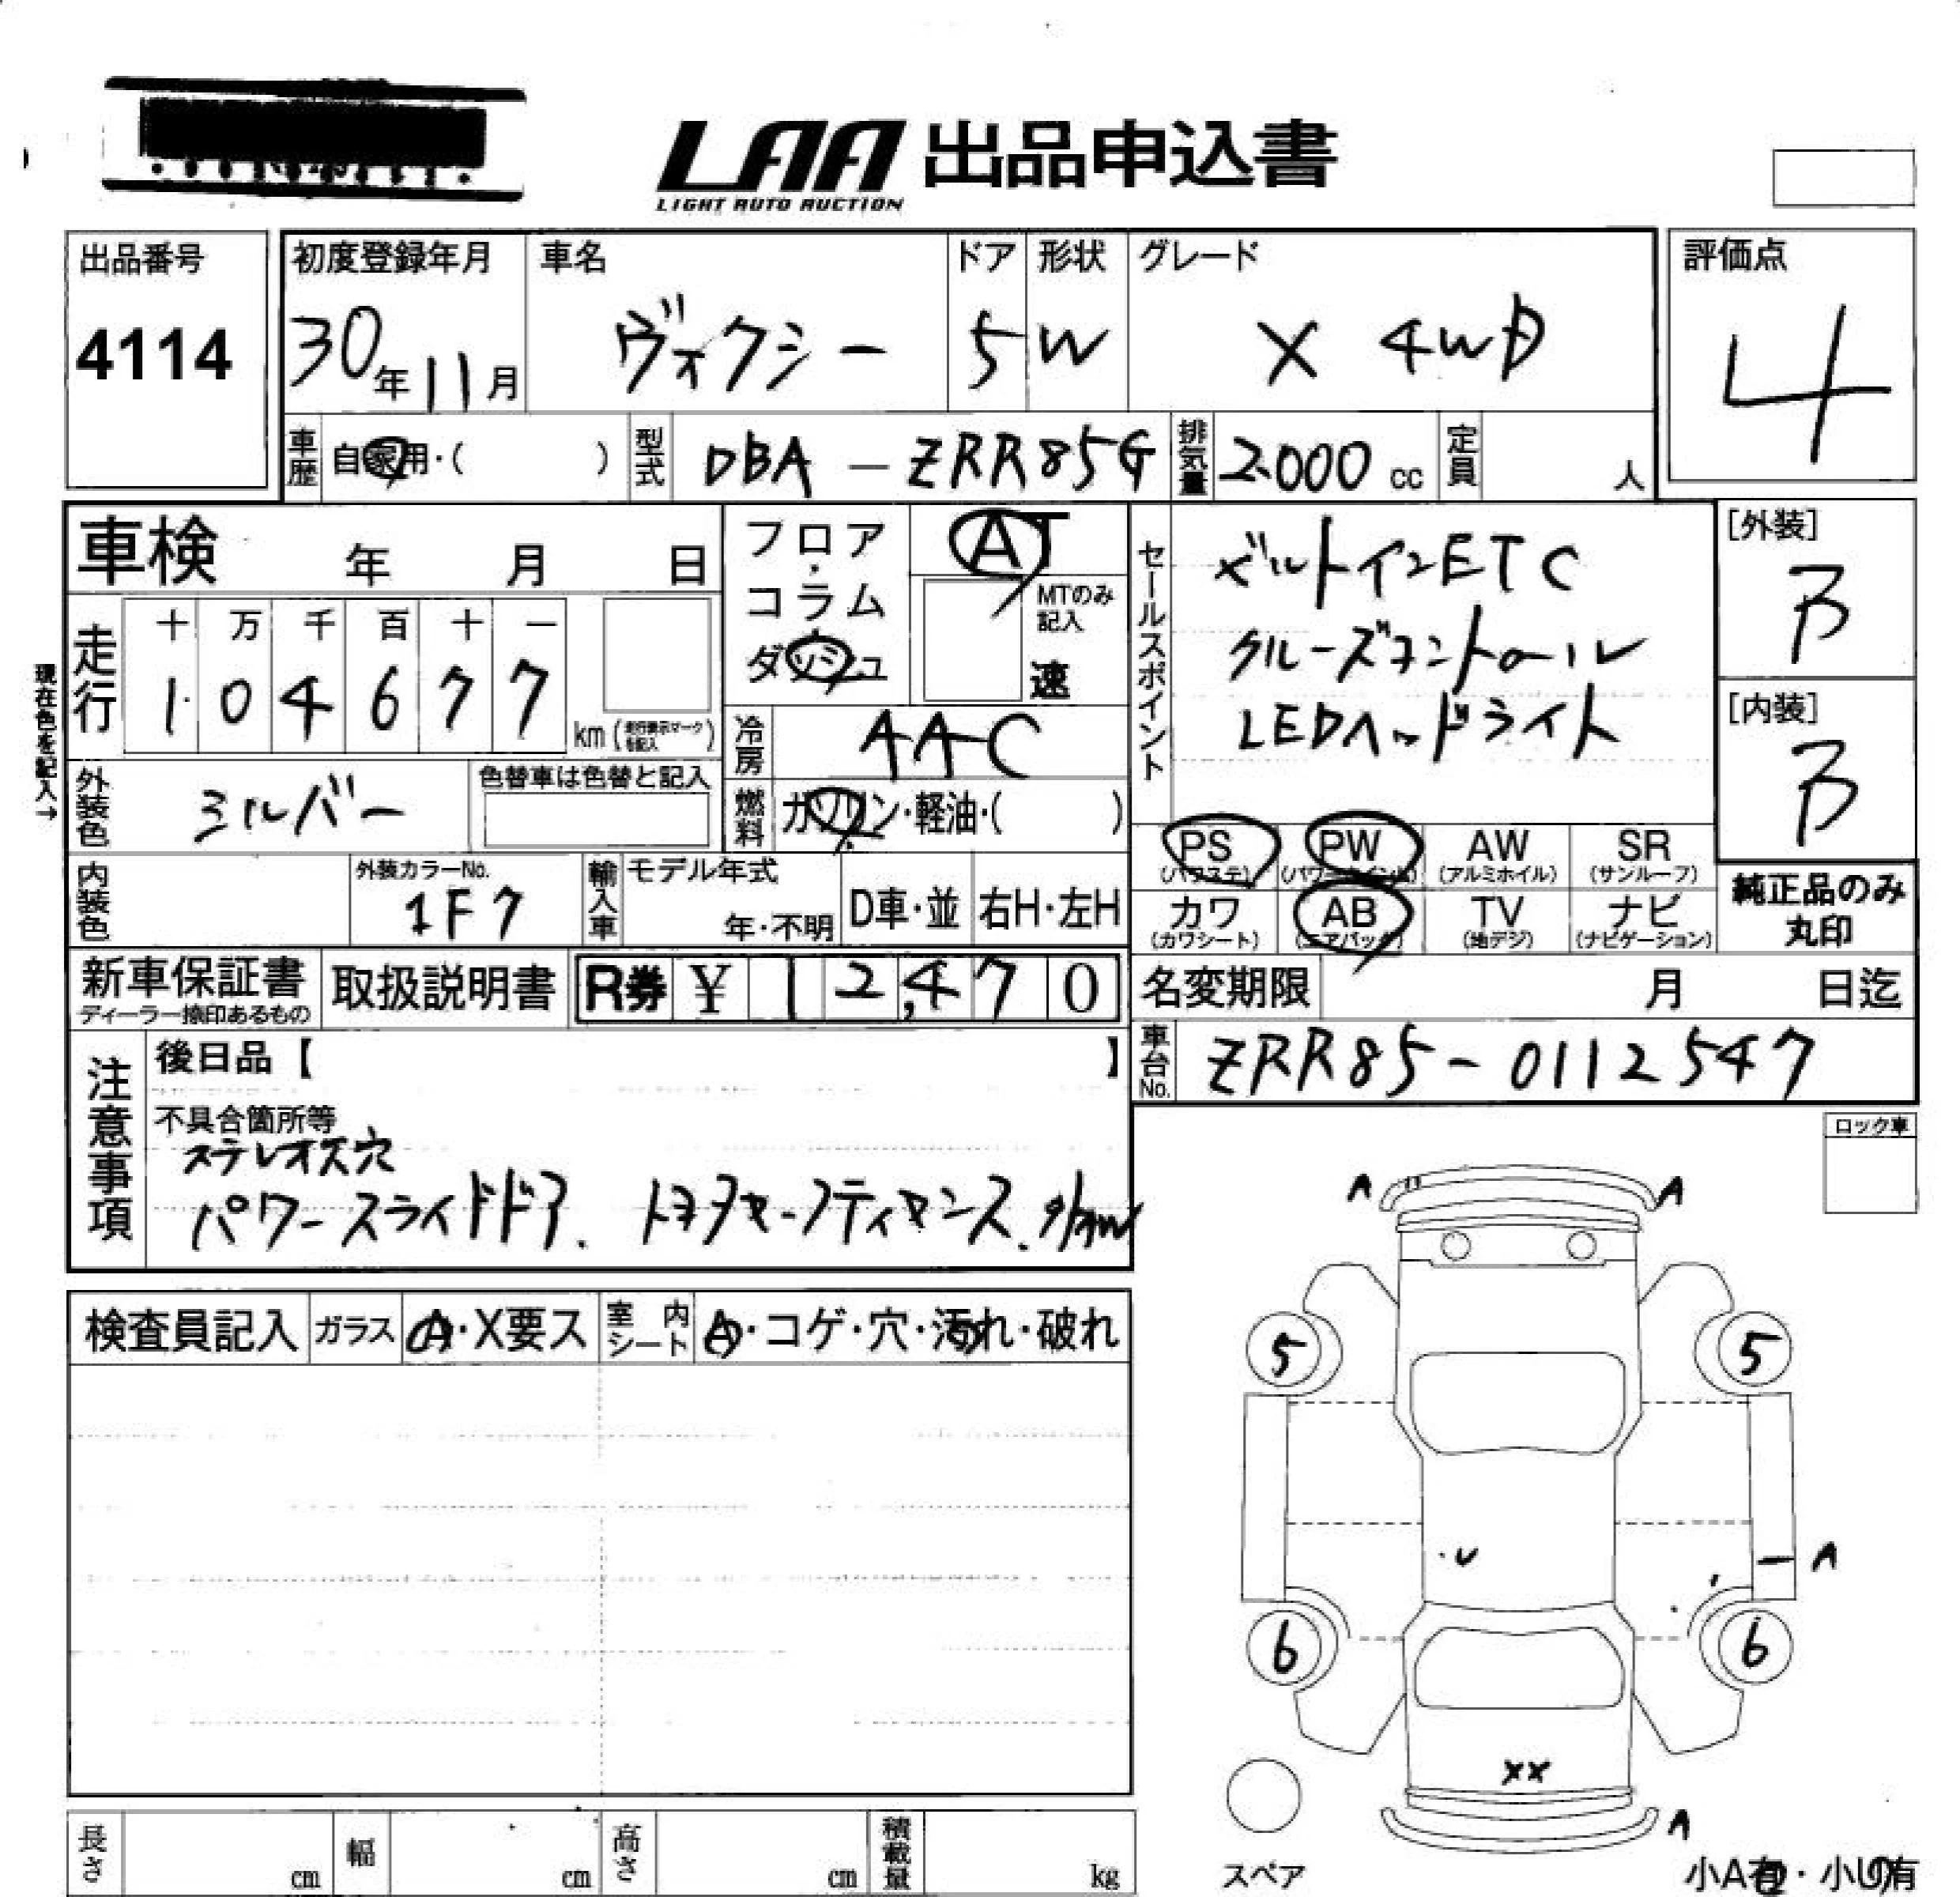 LAA 出品申込書
LIGHT AUTO AUCTION
出品番号
4114
初度登録年月
30年11月
車名
ヴォクシー
ドア
5
形状
W
グレード
X 4WD
評価点
4
車歴 自家用・( )
型式 DBA-ZRR85G
排気量 2.000 cc
定員 人
車検 年 月 日
フロア・コラム・ダッシュ
AT
MTのみ記入
速
セールスポイント
ビルトインETC
クルーズコントロール
LEDヘッドライト
[外装]
B
[内装]
B
現在色を記入→
走行
十 万 千 百 十 一
1 0 4 6 7 7
km (走行表示マークを記入)
冷房 AAC
外装色 シルバー
色替車は色替と記入
燃料 ガソリン・軽油・( )
PS (パワステ)
PW (パワーウインド)
AW (アルミホイル)
SR (サンルーフ)
カワ (カワシート)
AB (エアバック)
TV (地デジ)
ナビ (ナビゲーション)
純正品のみ
丸印
内装色
外装カラーNo.
1F7
輸入車
モデル年式
年・不明
D車・並
右H・左H
新車保証書
ディーラー捺印あるもの
取扱説明書
R券 ¥ 12,470
名変期限 月 日迄
車台No. ZRR85-0112547
注意事項
後日品【 】
不具合箇所等
ステレオ穴
パワースライドドア. トヨタセーフティセンス.
ロック車
検査員記入
ガラス A・X要ス
室内シート A・コゲ・穴・汚れ・破れ
A A
5 5
U A
6 6
XX
A
スペア
小A有・小U有
長さ cm
幅 cm
高さ cm
積載量 kg